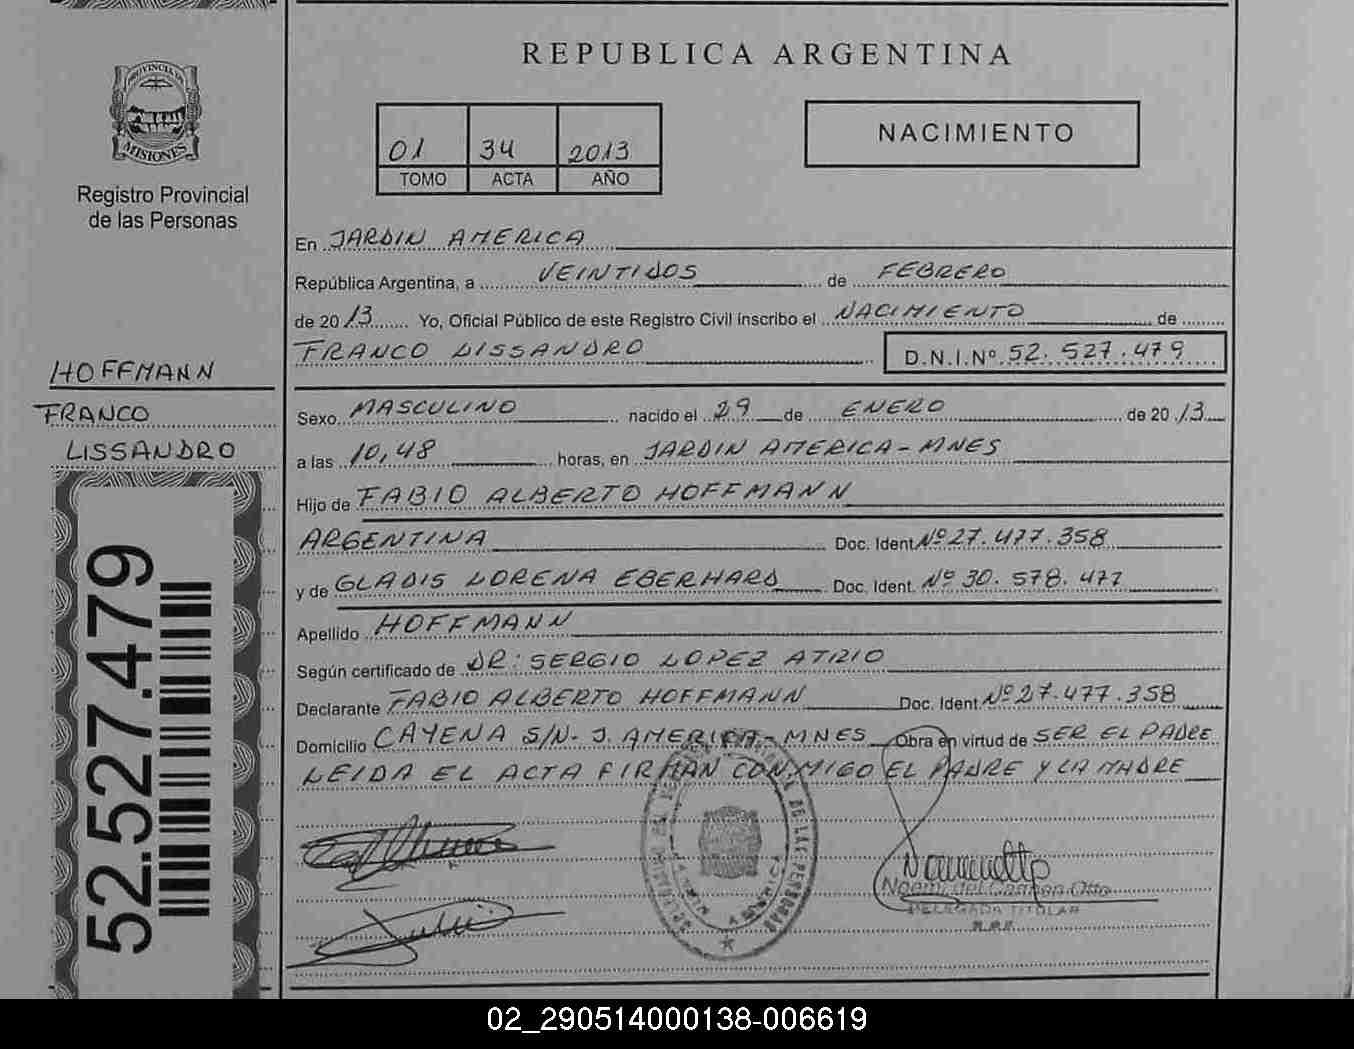 REPUBLICA ARGENTINA
PROVINCIA DE
MISIONES
Registro Provincial
de las Personas
01 34 2013
TOMO ACTA AÑO
NACIMIENTO
En JARDIN AMERICA
República Argentina, a VEINTIDOS de FEBRERO
de 2013 Yo, Oficial Público de este Registro Civil inscribo el NACIMIENTO de
FRANCO LISSANDRO D.N.I.Nº 52.527.479
HOFFMANN
FRANCO
LISSANDRO
52.527.479
Sexo MASCULINO nacido el 29 de ENERO de 2013
a las 10,48 horas, en JARDIN AMERICA-MNES
Hijo de FABIO ALBERTO HOFFMANN
ARGENTINA Doc. Ident. Nº 27.477.358
y de GLADIS LORENA EBERHARD Doc. Ident. Nº 30.578.477
Apellido HOFFMANN
Según certificado de DR: SERGIO LOPEZ ATIZIO
Declarante FABIO ALBERTO HOFFMANN Doc. Ident Nº 27.477.358
Domicilio CAYENA S/N- J. AMERICA-MNES Obra en virtud de SER EL PADRE
LEIDA EL ACTA FIRMAN CONMIGO EL PADRE Y LA MADRE
DE LAS PERSONAS
Noemi del Carmen Otto
DELEGADA TITULAR
02_290514000138-006619